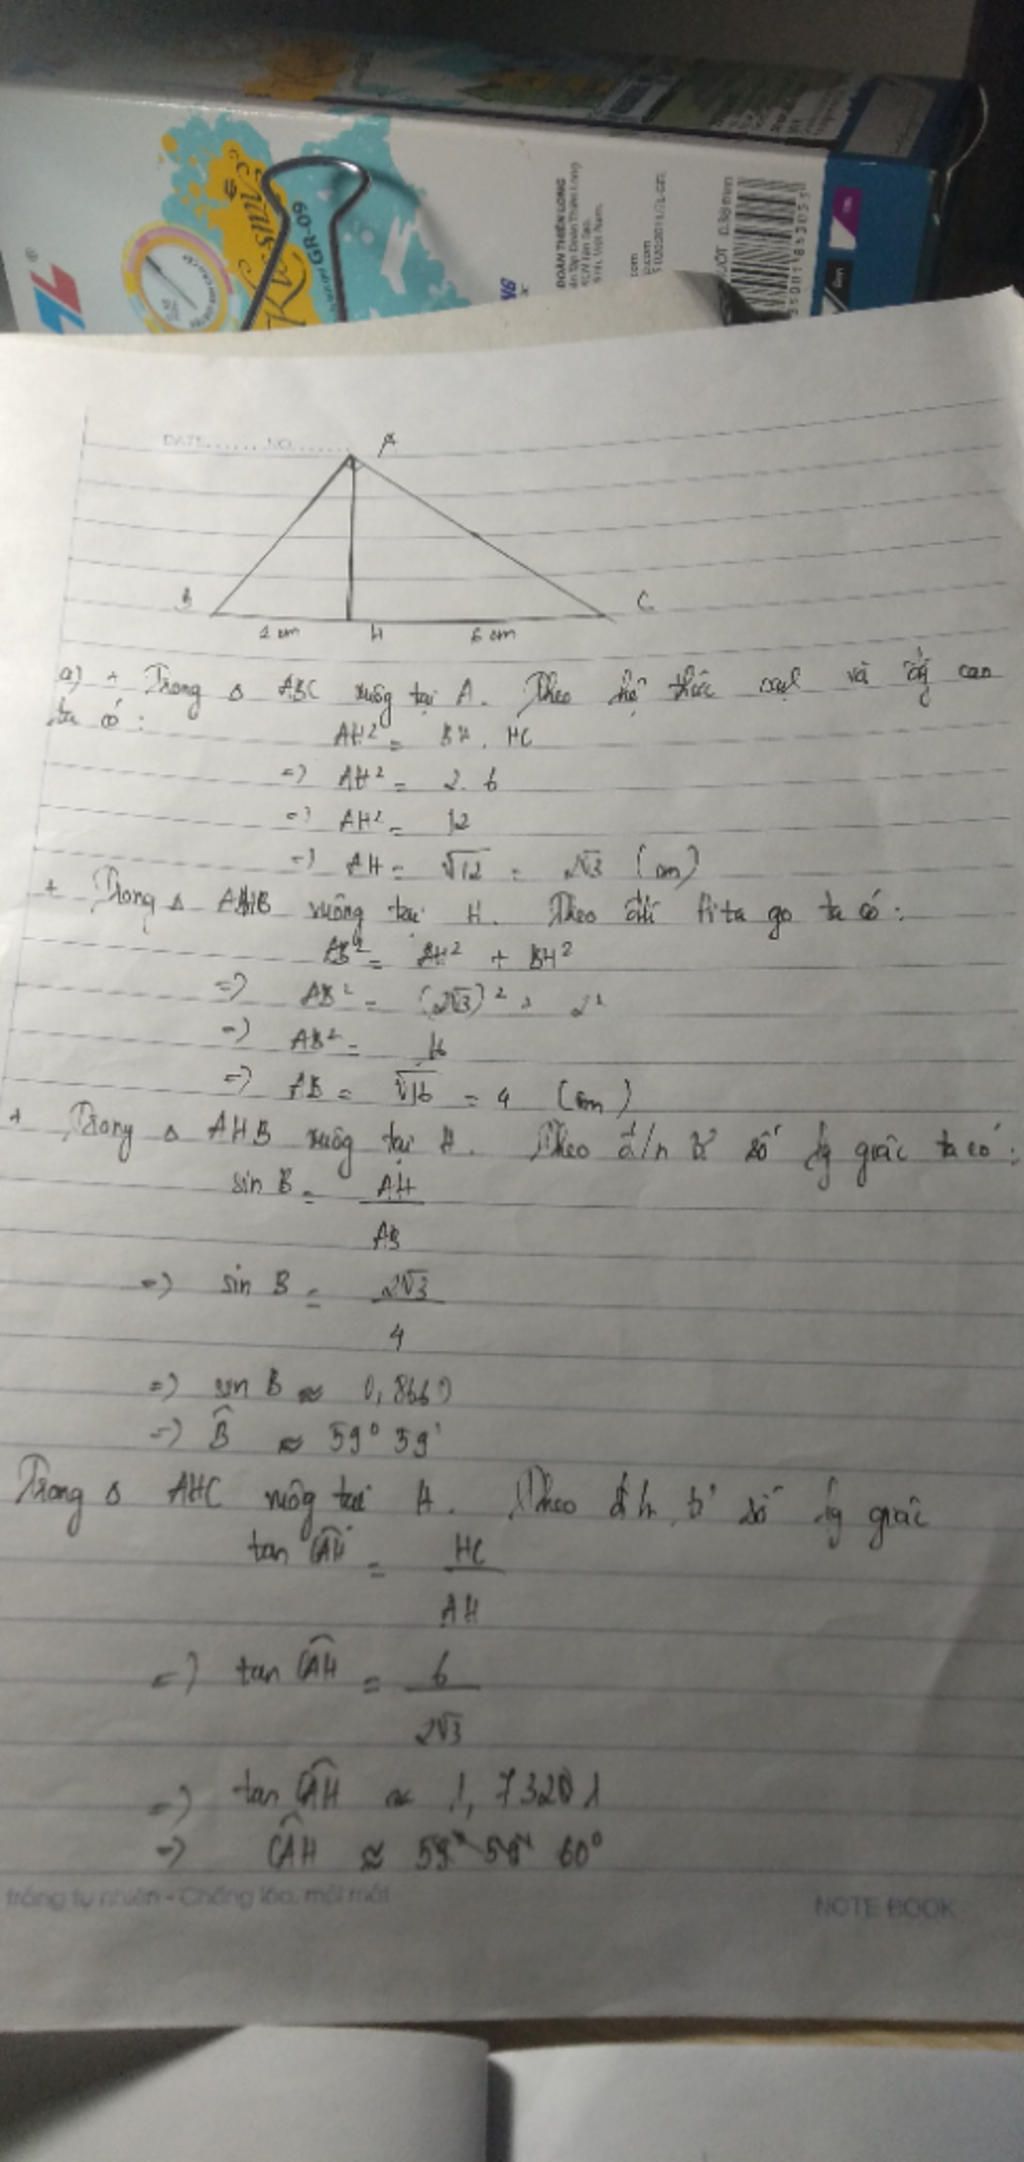 GR-09
ĐOÀN THIÊN LONG
0.38 mm
DATE ........ NO ........
A
B
C
2 cm H 6 cm
a) + Trong Δ ABC vuôg tại A. Theo hệ thức cạnh và đg cao
ta có:
AH² = BH . HC
=> AH² = 2. 6
=> AH² = 12
=> AH = √12 = 2√3 (cm)
+ Trong Δ AHB vuông tại H. Theo đlí Pi ta go ta có:
AB² = AH² + BH²
=> AB² = (2√3)² + 2²
=> AB² = 16
=> AB = √16 = 4 (cm)
+ Trong Δ AHB vuôg tại H. Theo đ/n tỉ số lg giác ta có:
sin B = AH
AB
=> sin B = 2√3
4
=> sin B ≈ 0,8660
=> B̂ ≈ 59° 59'
Trong Δ AHC vuôg tại H. Theo đ/n tỉ số lg giác
tan CAH = HC
AH
=> tan CAH = 6
2√3
=> tan CAH ≈ 1,7320
=> CAH ≈ 60°
trắng tự nhiên - Chống lóa, mỏi mắt
NOTE BOOK